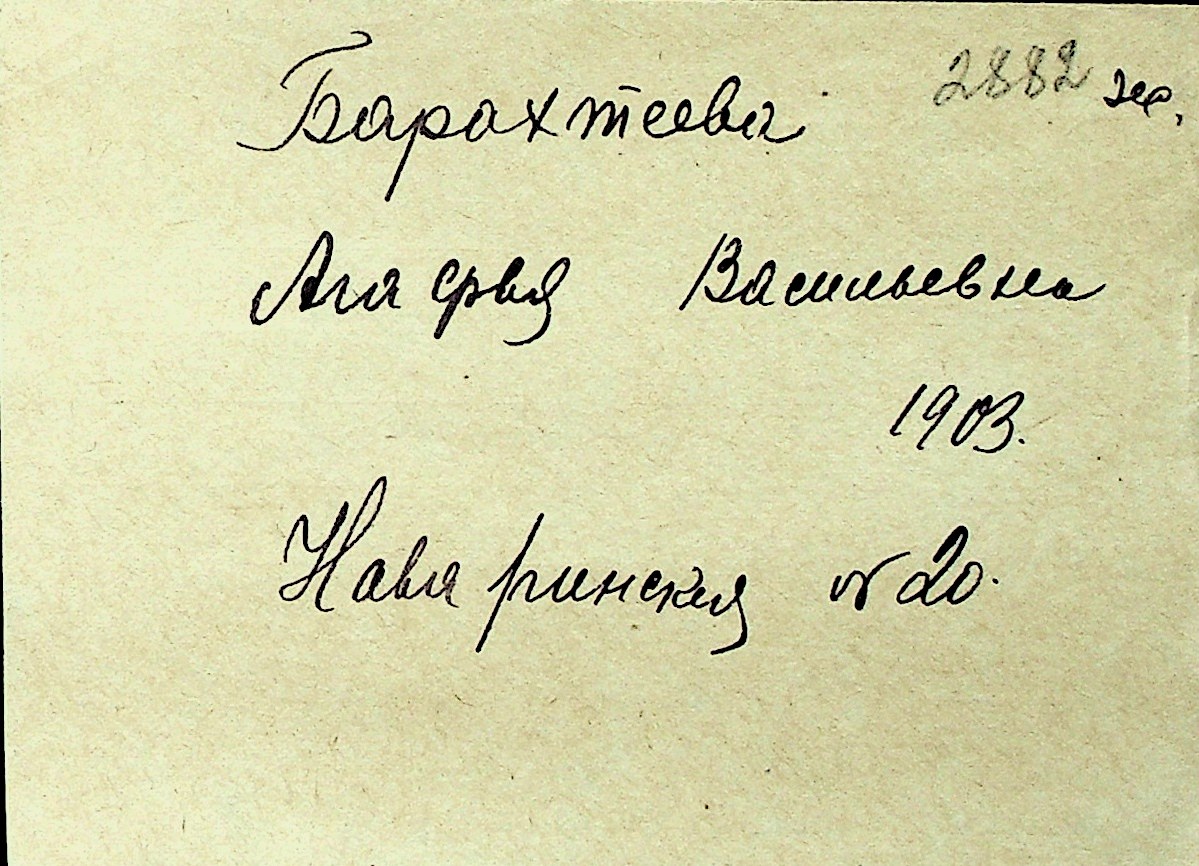 Барахтеева 2882
Агафья Васильевна
1903.
Наваринская № 20.